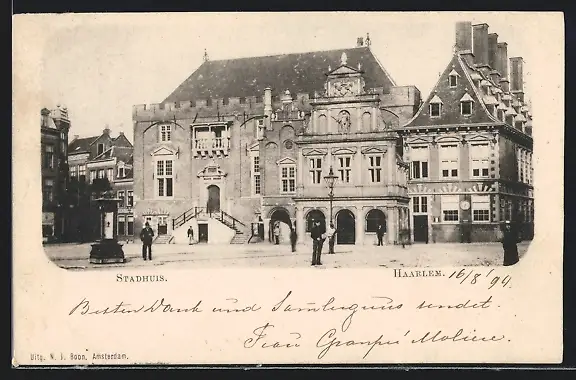 STADHUIS.
HAARLEM. 16/8/99.
Besten Dank und sendet
Frau Molière.
Uitg. N. J. Boon, Amsterdam.